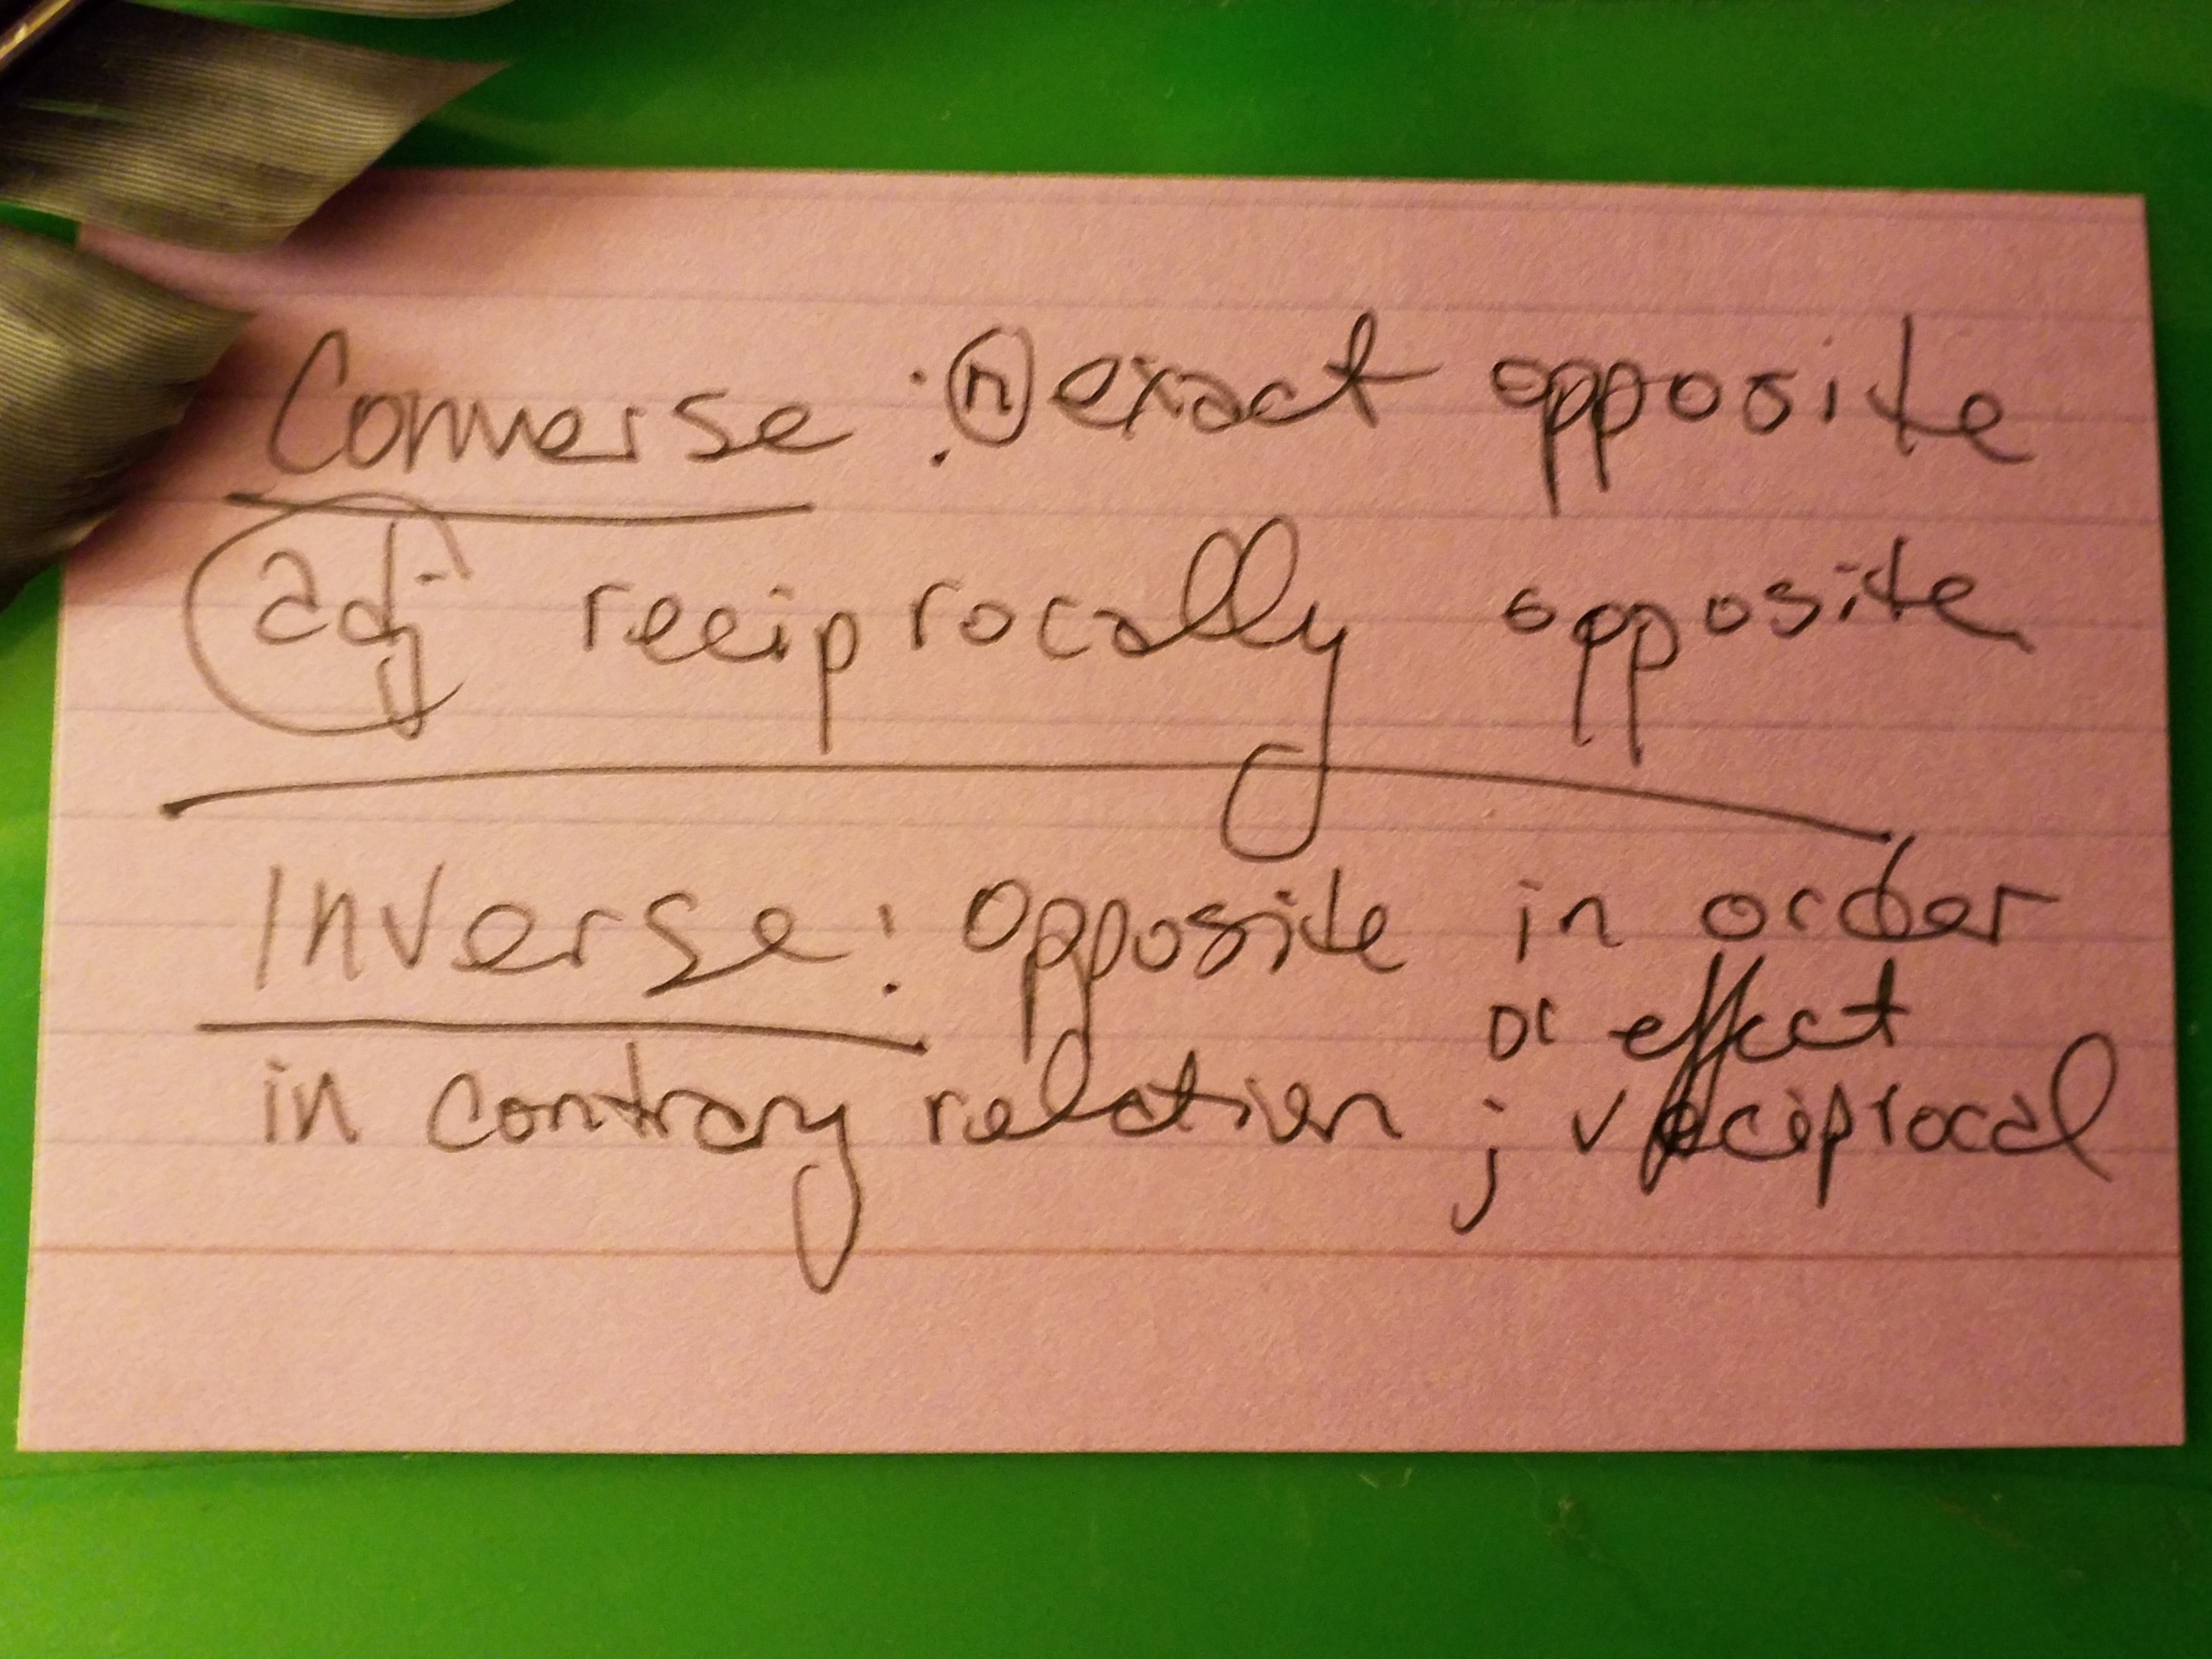 Converse : n exact opposite
adj reciprocally opposite
Inverse: opposite in order
or effect
in contrary relation ; reciprocal